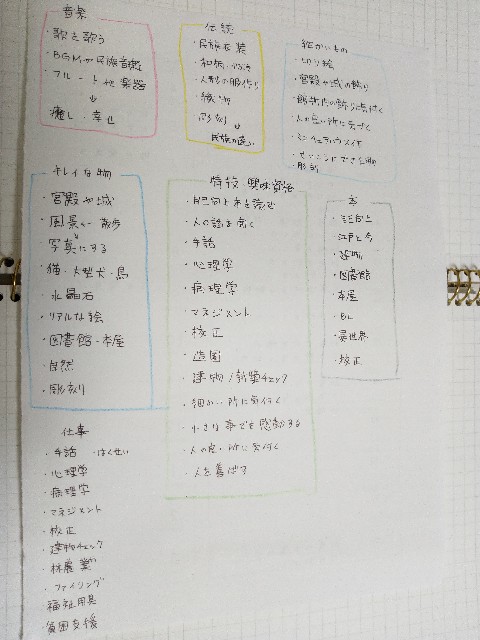 音楽
・歌を歌う
・BGMや民族音楽
・フルートや他楽器
↓
癒し・幸せ
伝統
・民族衣装
・人形の服作り
・織物
・彫刻
↓
民族の違い
細かいもの
・切り絵
・宮殿や城の飾り
・人の良い所に気づく
・ミニチュアハウス作
彫刻
キレイな物
・宮殿や城
・風景 散歩
・写真にする
・猫・大型犬・鳥
・水晶石
・リアルな絵
・図書館・本屋
・自然
・彫刻
特技 興味 資格
・自己向上本を読む
・人の話を聞く
・手話
・心理学
・病理学
・マネジメント
・校正
・造園
・建物/新築チェック
・細かい所に気付く
・小さな事でも感動する
・人の良い所に気付く
・人を喜ばす
本
・自己向上
・江戸と今
・図書館
・本屋
・BL
・異世界
・校正
仕事
・手話
・心理学
・病理学
・マネジメント
・校正
・建物チェック
・林農業
・ファイリング
福祉用具
貧困支援